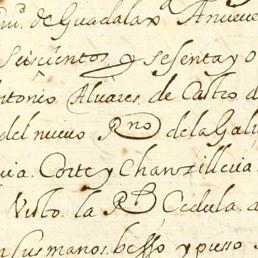 de Guadalax Anueve
Seiscientos y sesenta y o
Antonio Alvares de Castro d
del nuevo Rno de la Gali
uia Corte y Chanzilleria
Visto la Rl Cedula a
sus manos besso y puso